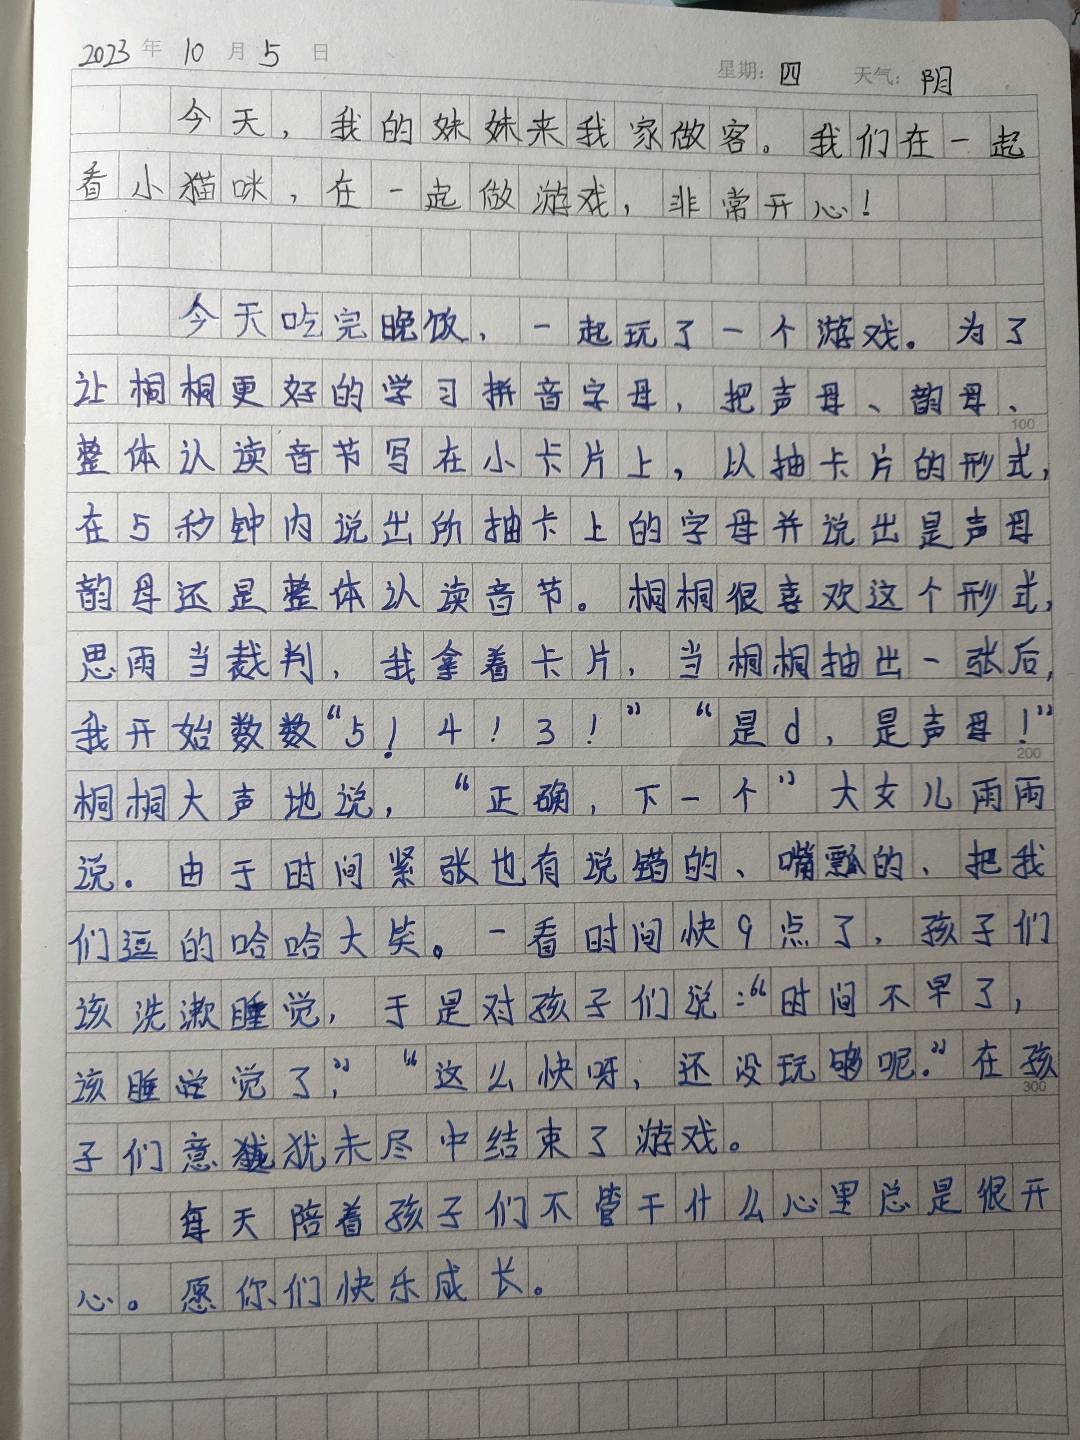 2023年 10月5日 星期：四 天气：阴
今天，我的妹妹来我家做客。我们在一起
看小猫咪，在一起做游戏，非常开心！
今天吃完晚饭，一起玩了一个游戏。为了
让桐桐更好的学习拼音字母，把声母、韵母、
100
整体认读音节写在小卡片上，以抽卡片的形式，
在5秒钟内说出所抽卡上的字母并说出是声母
韵母还是整体认读音节。桐桐很喜欢这个形式，
思雨当裁判，我拿着卡片，当桐桐抽出一张后，
我开始数数“5！4！3！”“是d，是声母！”
200
桐桐大声地说，“正确，下一个”大女儿雨雨
说。由于时间紧张也有说错的、嘴瓢的、把我
们逗的哈哈大笑。一看时间快9点了，孩子们
该洗漱睡觉，于是对孩子们说：“时间不早了，
该睡觉了，”“这么快呀，还没玩够呢。”在孩
300
子们意犹未尽中结束了游戏。
每天陪着孩子们不管干什么心里总是很开
心。愿你们快乐成长。